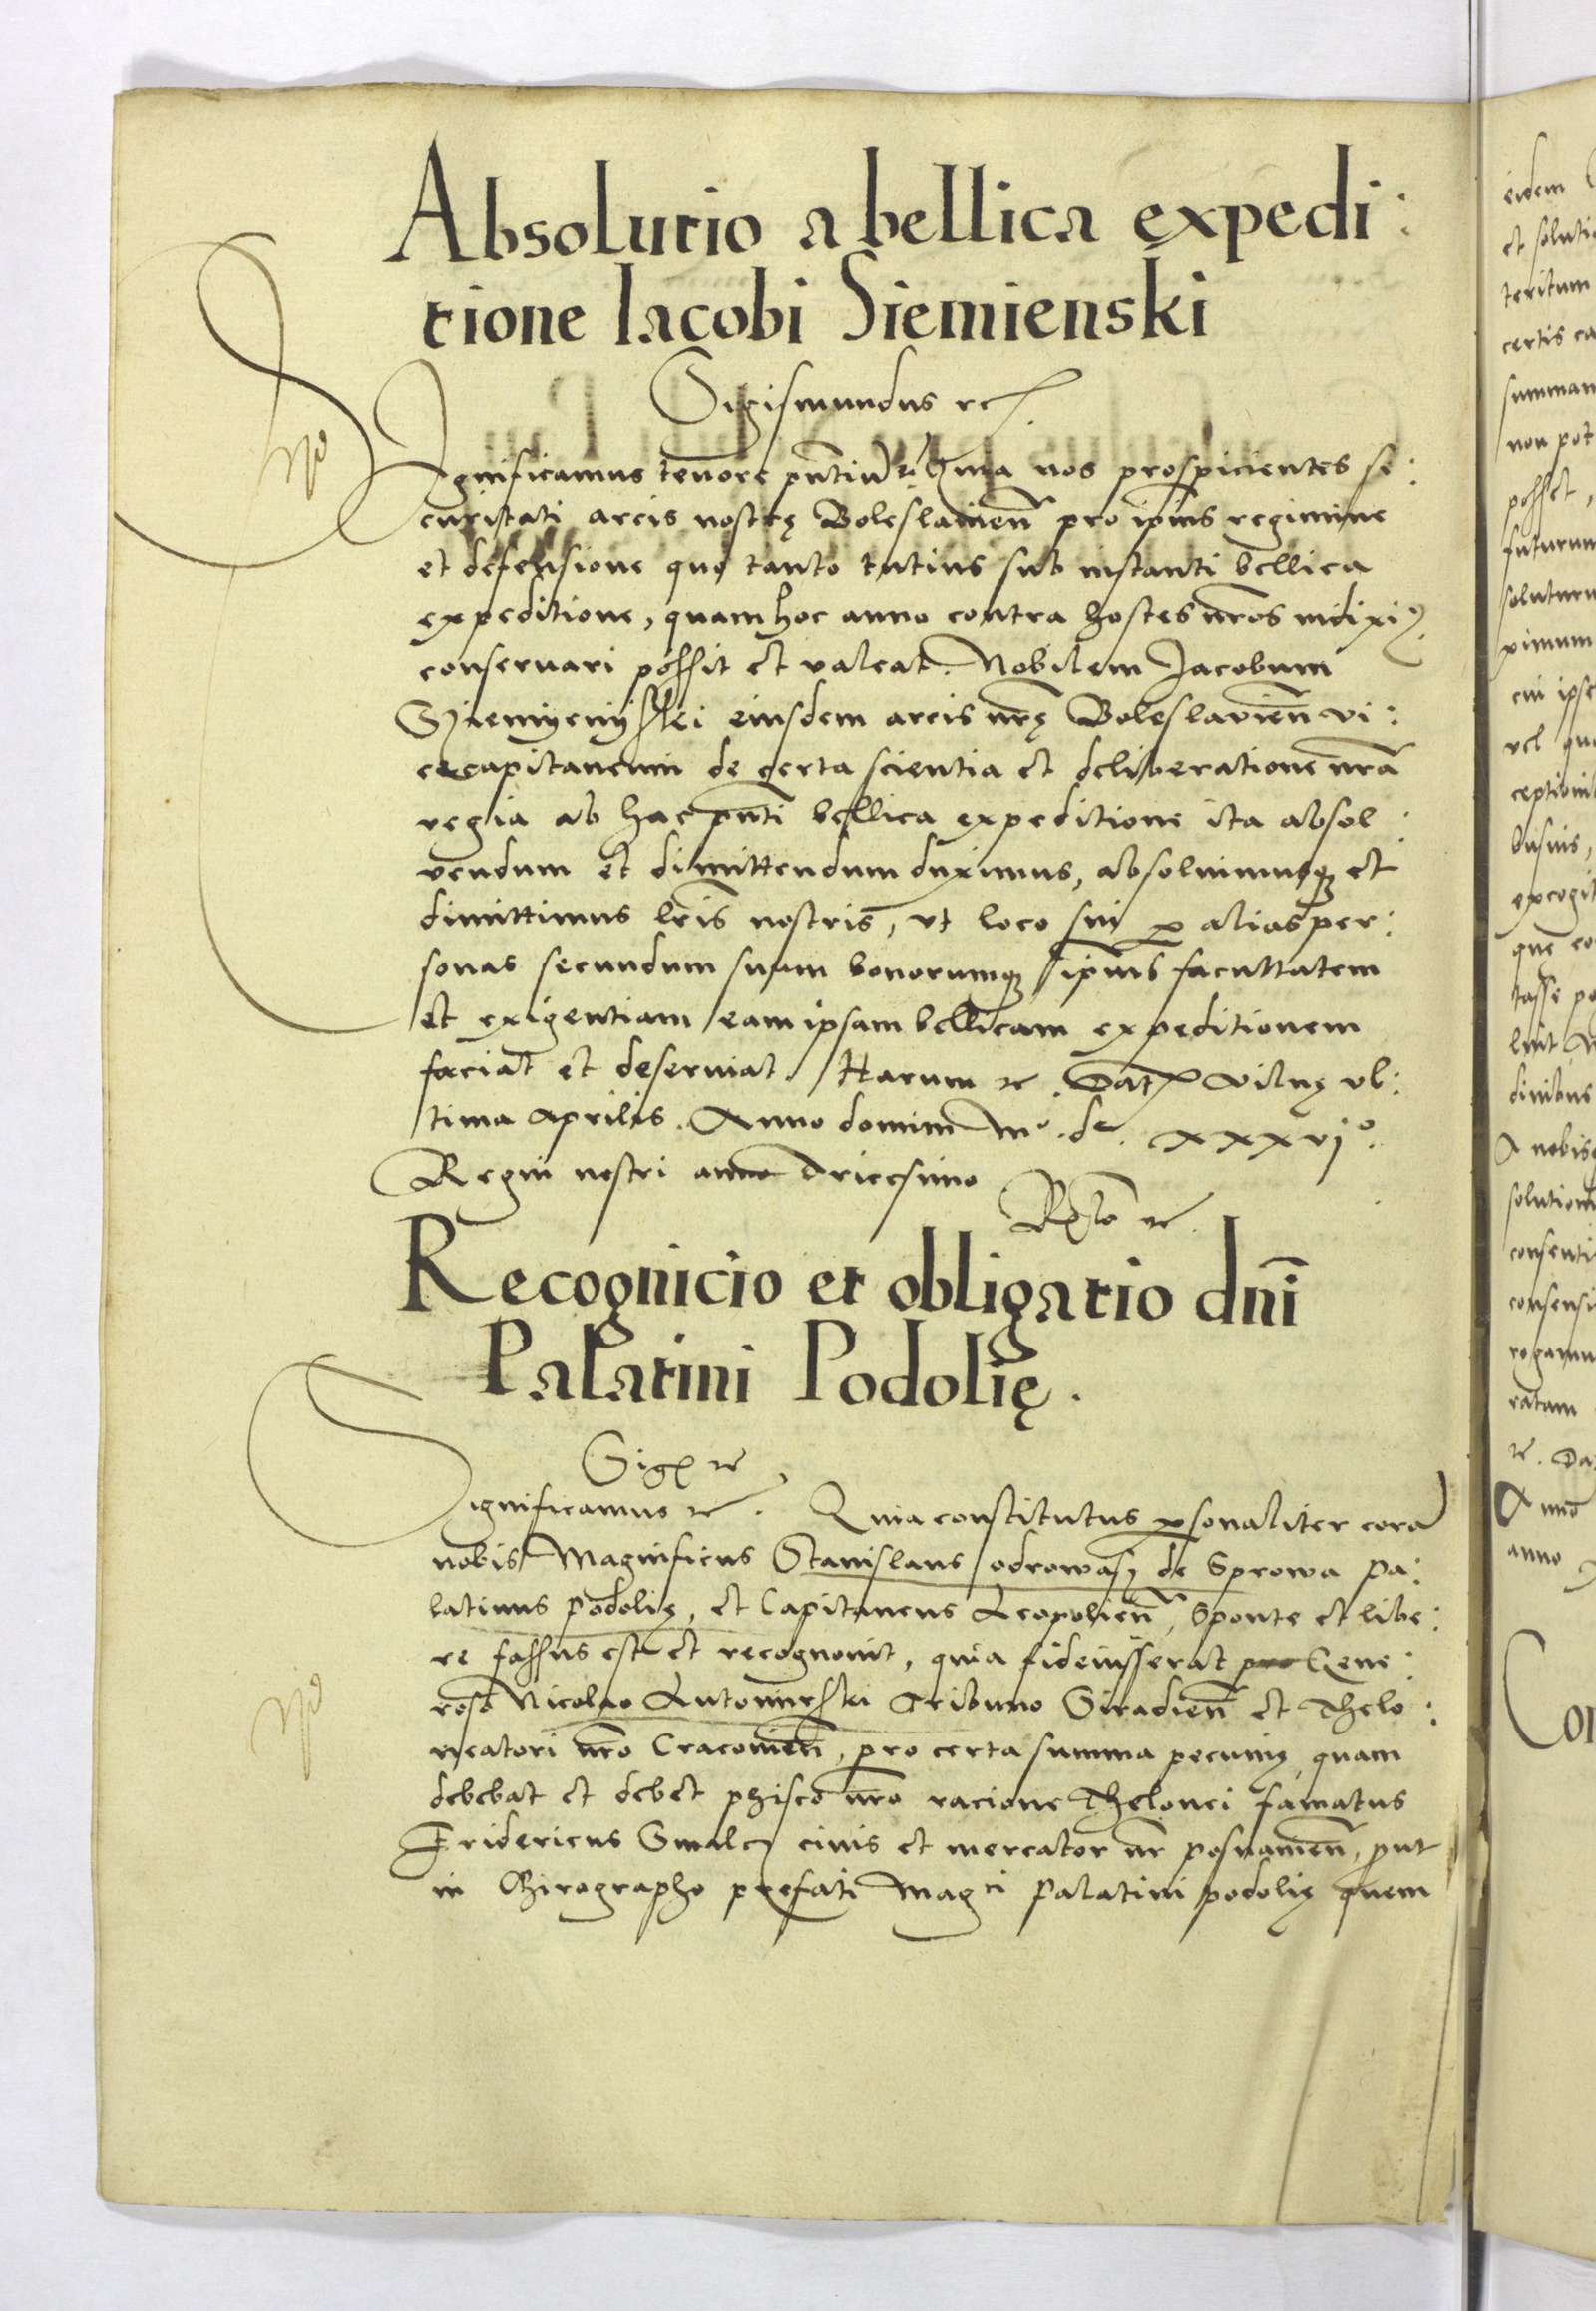 Absolutio a bellica expedi:
tione Iacobi Siemienski
Sigismundus etc.
Significamus tenore pñtiũ etc. Quia nos prospicientes se:
curitati arcis nostrę Boleslauieñ pro ip̃ius regimine
et defensione quo tanto tutius sub instanti bellica
expeditione, quam hoc anno contra hostes nr̃os indixim9
conseruari possit et valeat. Nobilem Jacobum
Sÿemÿenÿskei eiusdem arcis nr̃ę Boleslavieñ vi:
cecapitaneum de certa scientia et deliberatione nr̃a
regia ab hac pñti bellica expeditione ita absol:
vendum et dimittendum duximus, absoluimusq; et
dimittimus lr̃is nostris, ut loco sui p alias per:
sonas secundum suam bonorumq; ip̃ius facultatem
et exigentiam eam ipsam bellicam expeditionem
faciat et deseruiat. Harum etc. Dat. Vilnę ul:
tima Aprilis. Anno domini mº. dº. xxxvjº.
Regni nostri anno tricesimo
Rełõ etc.
Recognicio et obligatio dñi
Palatini Podolię.
Sigꝭ etc.
Significamus etc. Quia constitutus psonaliter corã
nobis Magnificus Stanislaus odrowasz de Sprowa pa:
latinus podolię, et Capitaneus Leopolieñ, Sponte et libe:
re fassus est et recognouit, quia fideiusserat Gene:
roso Nicolao Lutomirskei Tribuno Siradieñ et Thelo:
neatori nr̃o Cracouieñ, pro certa summa pecunię quam
debebat et debet phisco nr̃o racione Thelonei famatus
Fridericus Smalcz ciuis et mercator nr̃ posnanieñ, put
in Chirographo prefati Magci Palatini podolię quem